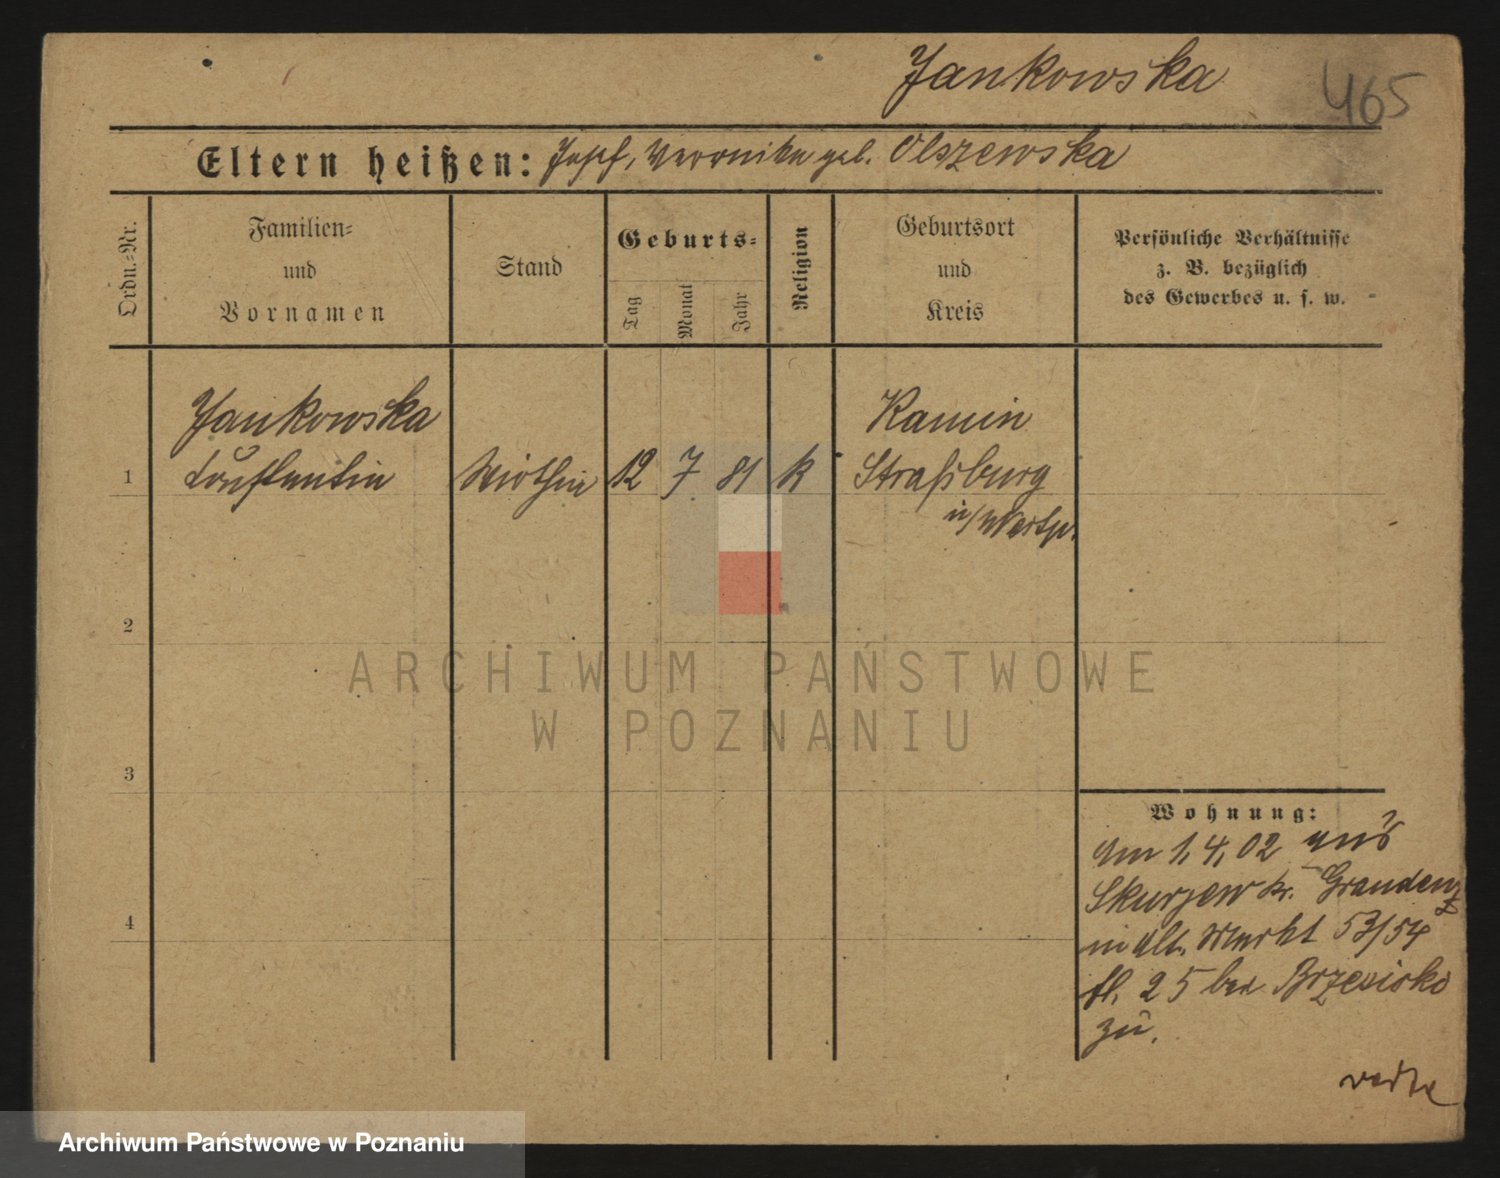 Jankowska
465
Eltern heißen: Josef, Veronika geb. Olszewska
Ordn.-Nr.
Familien-
und
Vornamen
Stand
Geburts-
Tag
Monat
Jahr
Religion
Geburtsort
und
Kreis
Persönliche Verhältnisse
z. B. bezüglich
des Gewerbes u. s. w.
Jankowska
1 Konstantin Wirthin 12 7 81 k
Kamin
Straßburg
i/Westpr.
2
3
4
Wohnung:
am 1,4,02 aus
Skurzew Kr. Graudenz
in Alt. Markt 53/54
bei Brzesisko
zu.
ARCHIWUM PAŃSTWOWE
W POZNANIU
Archiwum Państwowe w Poznaniu